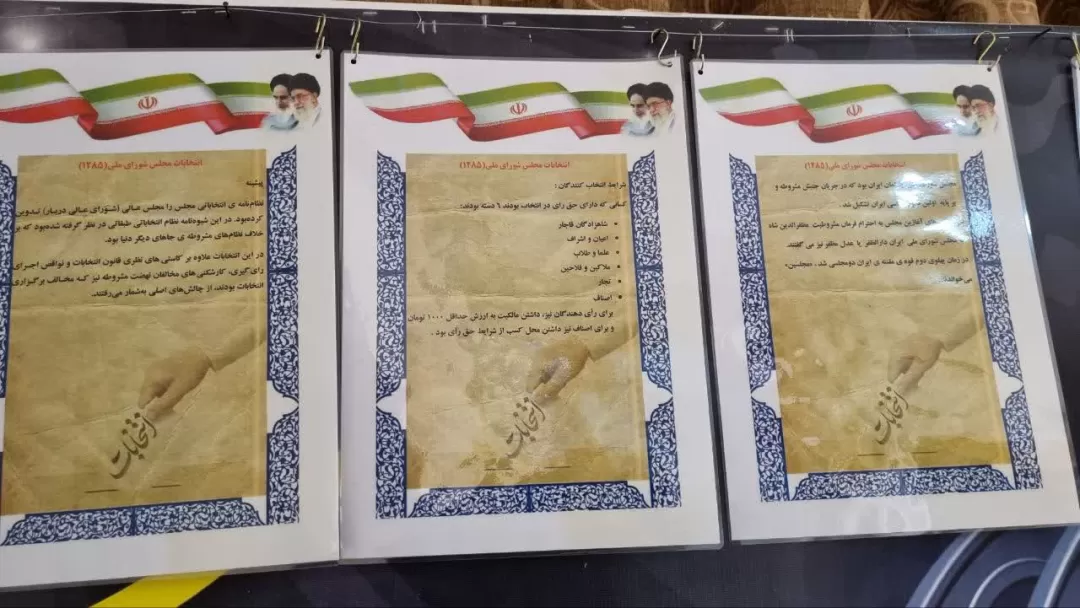 انتخابات مجلس شورای ملی(۱۲۸۵)
ایران بود که در جریان جنبش مشروطه و
بر پایه اولین ایران تشکیل شد.
آغازین مجلس به احترام فرمان مشروطیت مظفرالدین شاه
مجلس شورای ملی ایران دارالظفر یا عدل مظفر نیز می گفتند.
در زمان پهلوی دوم قوه ی مقننه ی ایران دومجلسی شد ، «مجلسین»
می‌خواندند.
انتخابات
انتخابات مجلس شورای ملی(۱۲۸۵)
شرایط انتخاب کنندگان :
کسانی که دارای حق رای در انتخاب بودند ۶ دسته بودند:
• شاهزادگان قاجار
• اعیان و اشراف
• علما و طلاب
• ملاکین و فلاحین
• تجار
• اصناف
برای رأی دهندگان نیز، داشتن مالکیت به ارزش حداقل ۱۰۰۰ تومان
و برای اصناف نیز داشتن محل کسب از شرایط حق رأی بود .
انتخابات
انتخابات مجلس شورای ملی(۱۲۸۵)
پیشینه
نظام‌نامه ی انتخاباتی مجلس را مجلس عـالی (شـورای عـالی دربـار) تـدوین
کرده‌بود. در این شیوه‌نامه نظام انتخاباتی طبقاتی در نظر گرفته شده‌بود که بر
خلاف نظام‌های مشروطه ی جاهای دیگر دنیا بود.
در این انتخابات علاوه بر کاستی های نظری قانون انتخابات و نواقص اجـرای
رای‌گیری، کارشکنی های مخالفان نهضت مشروطه نیز کـه مخـالف برگـزاری
انتخابات بودند، از چالش‌های اصلی به‌شمار می‌رفتند.
انتخابات